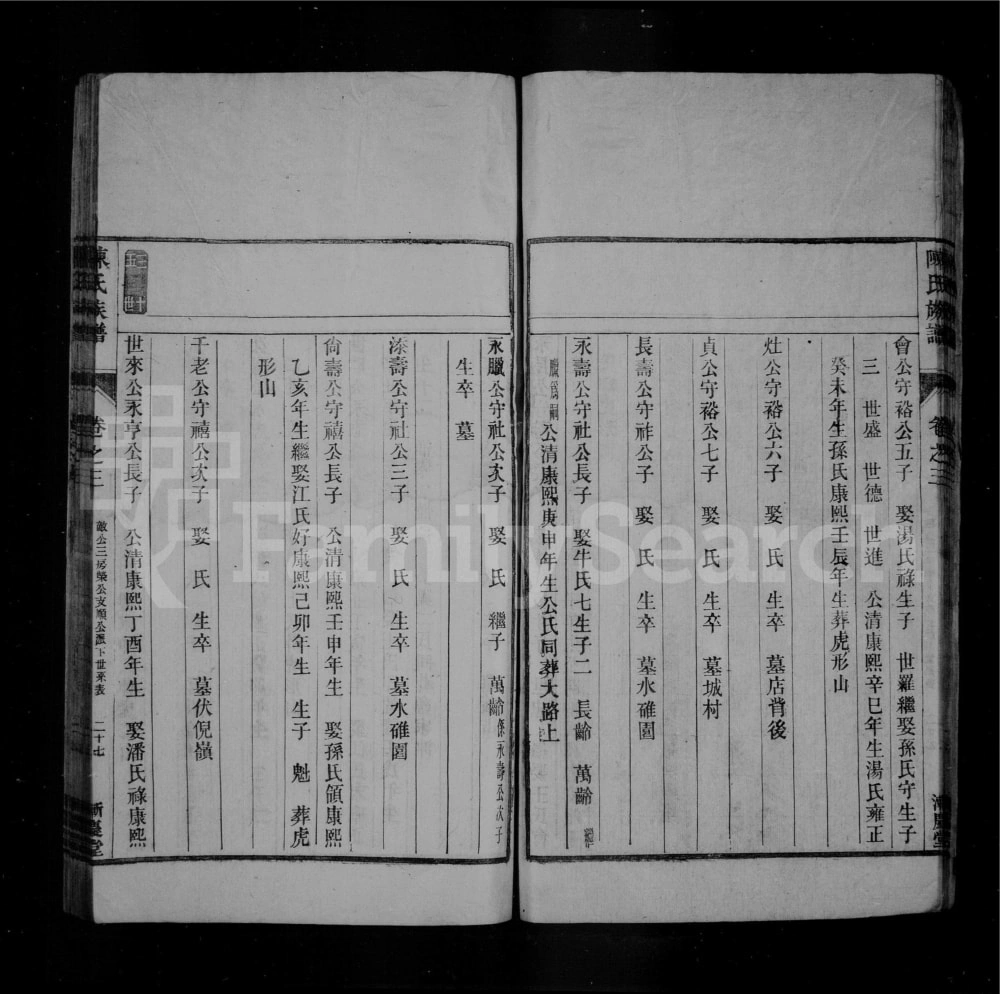 陳氏族譜 卷之三
會公守裕公五子 娶湯氏祿生子 世羅繼娶孫氏守生子
三 世盛 世德 世進 公清康熙辛巳年生湯氏雍正
癸未年生孫氏康熙壬辰年生葬虎形山
灶公守裕公六子 娶 氏 生卒 墓店背後
貞公守裕公七子 娶 氏 生卒 墓城村
長壽公守祚公子 娶 氏 生卒 墓水碓園
永壽公守社公長子 娶牛氏七生子二 長齡 萬齡 繼
臘為嗣 公清康熙庚申年生公氏同葬大路上
永臘公守社公次子 娶 氏 繼子 萬齡係永壽公次子
生卒 墓
添壽公守社公三子 娶 氏 生卒 墓水碓園
尙壽公守禧公長子 公清康熙壬申年生 娶孫氏領康熙
乙亥年生繼娶江氏好康熙己卯年生 生子 魁 葬虎
形山
千老公守禧公次子 娶 氏 生卒 墓伏倪嶺
世來公永亨公長子 公清康熙丁酉年生 娶潘氏祿康熙
陳氏族譜 卷之三 二十七
FamilySearch